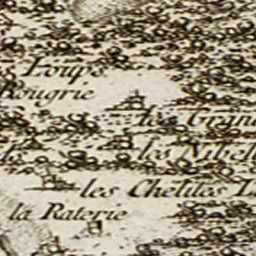 Loups
Bougrie
les Gran
les Nibel
les Chetites L
la Raterie